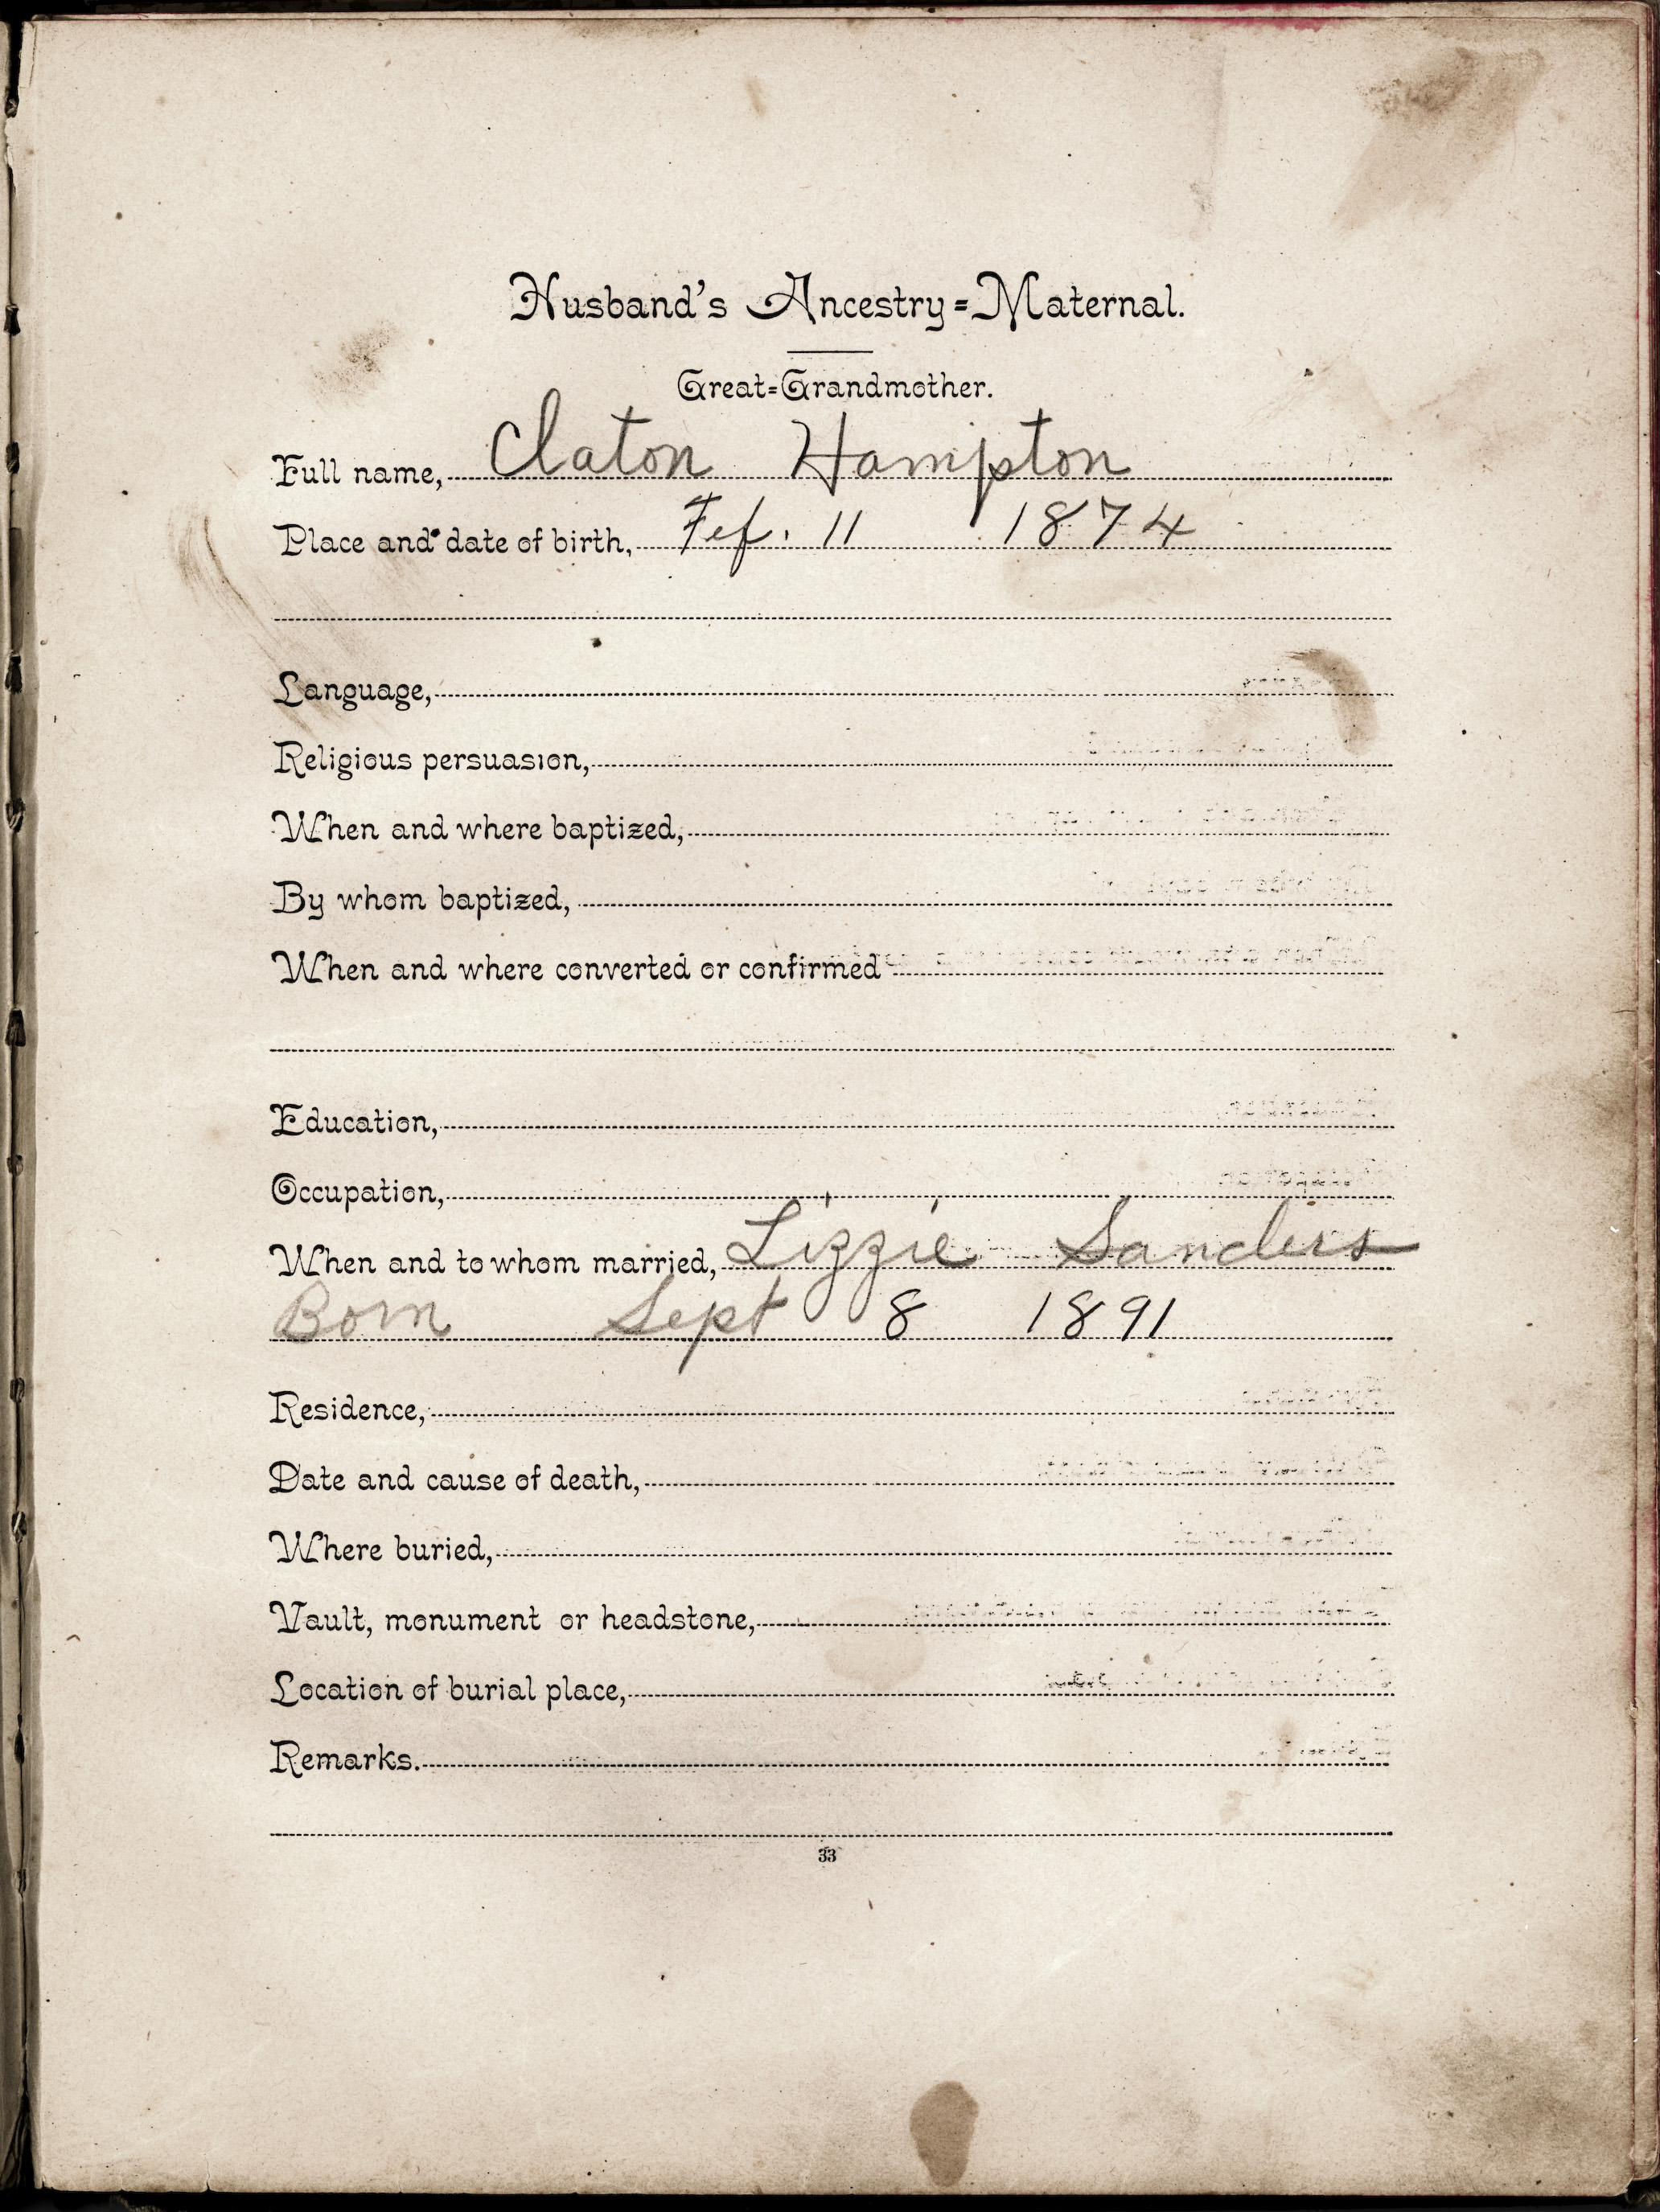 Husband's Ancestry=Maternal.
Great=Grandmother.
Full name, Claton Hampton
Place and date of birth, Fef. 11 1874
Language,
Religious persuasion,
When and where baptized,
By whom baptized,
When and where converted or confirmed
Education,
Occupation,
When and to whom married, Lizzie Sanders
Born Sept 8 1891
Residence,
Date and cause of death,
Where buried,
Vault, monument or headstone,
Location of burial place,
Remarks.
33